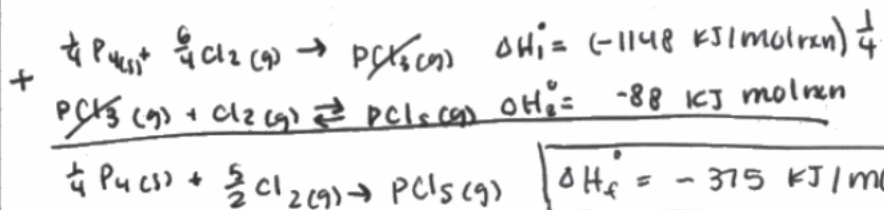 1/4 P4(s) + 6/4 Cl2(g) → PCl3(g) ΔH1° = (-1148 kJ/molrxn) 1/4
+ PCl3(g) + Cl2(g) ⇄ PCl5(g) ΔH2° = -88 kJ molrxn
1/4 P4(s) + 5/2 Cl2(g) → PCl5(g) ΔHf° = -375 kJ/mo